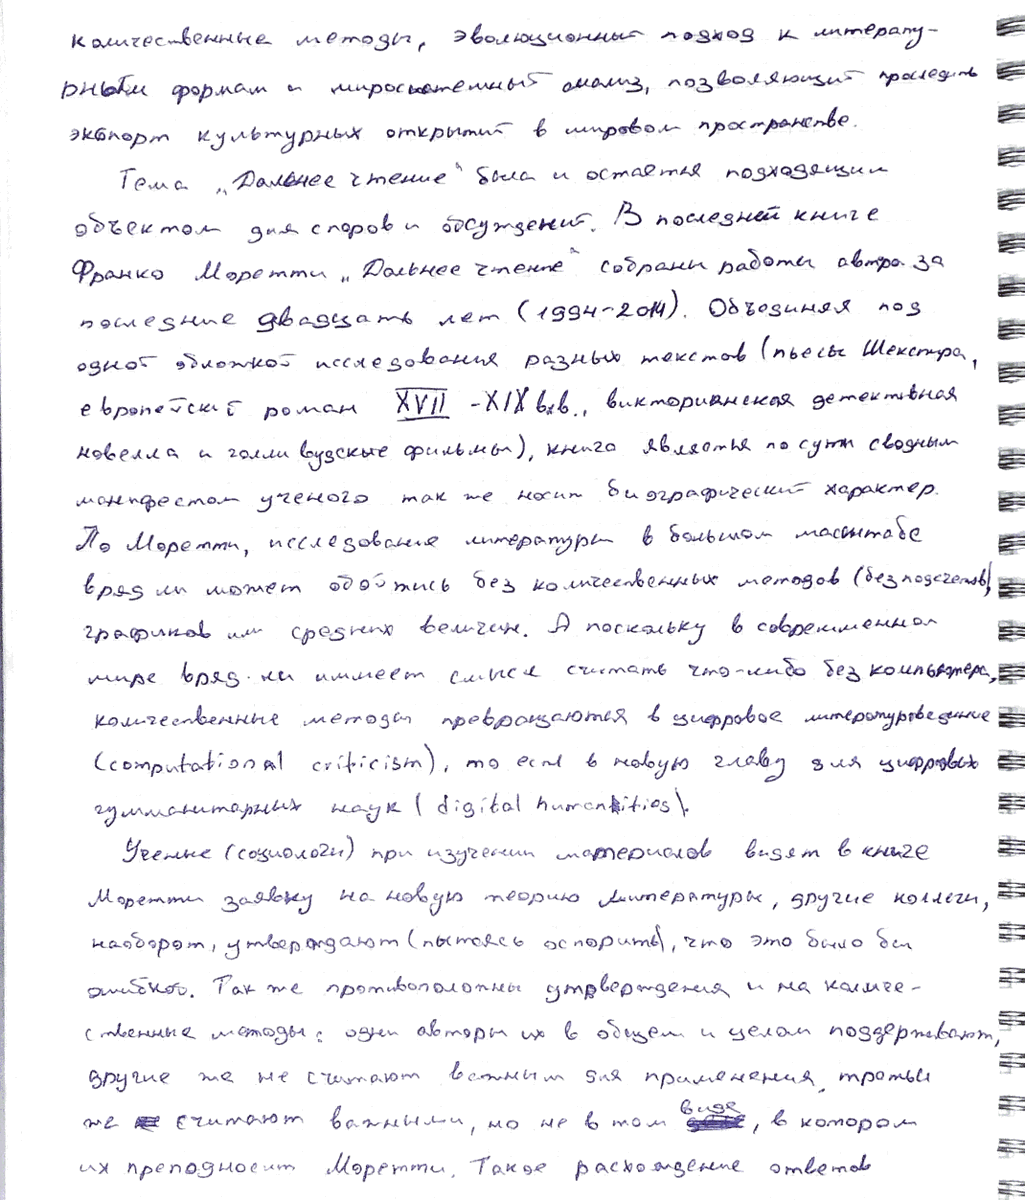 количественные методы, эволюционный подход к литерату-
рным формам и миросистемный анализ, позволяющий проследить
экспорт культурных открытий в мировом пространстве.
Тема „Дальнее чтение“ была и остается подходящим
объектом для споров и обсуждений. В последней книге
Франко Моретти „Дальнее чтение“ собраны работы автора за
последние двадцать лет (1994-2014). Объединяя под
одной обложкой исследования разных текстов (пьесы Шекспира,
европейский роман XVII -XIX в.в., викторианская детективная
новелла и голливудские фильмы), книга является по сути сводным
манифестом ученого так же носит биографический характер.
По Моретти, исследование литературы в большом масштабе
вряд ли может обойтись без количественных методов (без подсчетов,
графиков или средних величин. А поскольку в современном
мире вряд-ли иммеет смысл считать что-либо без компьютера,
количественные методы превращаются в цифровое литературоведение
(computational criticism), то есть в новую главу для цифровых
гумманитарных наук (digital humanities).
Ученые (социологи) при изучении материалов видят в книге
Моретти заявку на новую теорию литературы, другие коллеги,
наоборот, утверждают (пытаясь оспорить), что это было бы
ошибкой. Так же противоположны утверждения и на количе-
ственные методы: одни авторы их в общем и целом поддерживают,
другие же не считают важным для применения, третьи
же считают важными, но не в том виде, в котором
их преподносит Моретти. Такое расхождение ответов